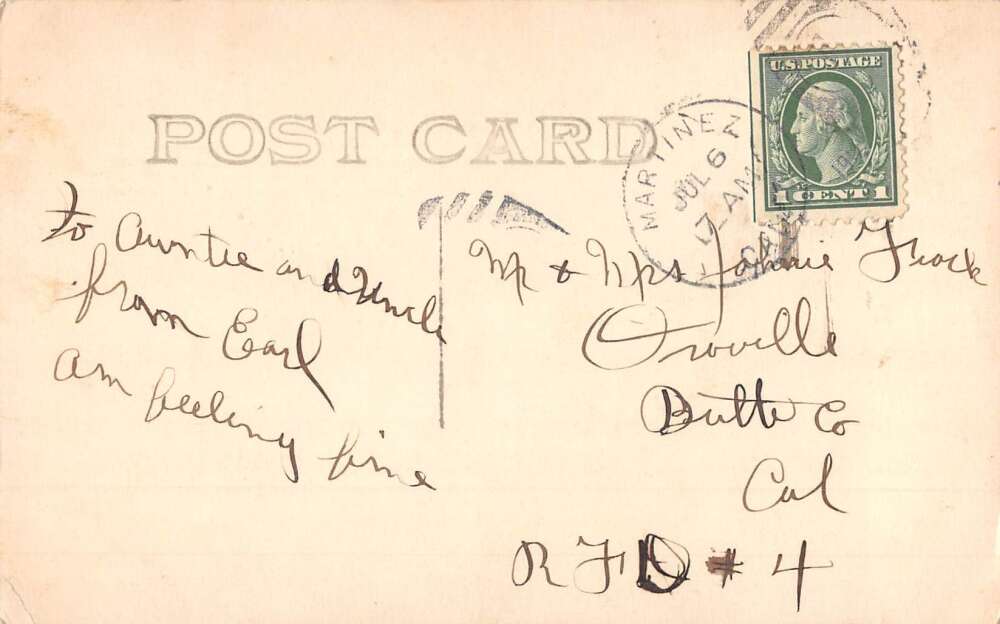 U.S. POSTAGE
1 CENT 1
POST CARD
MARTINEZ
JUL 6
7 AM
CAL
to Auntie and Uncle
from Earl
am feeling fine
Mr & Mrs Johnie
Oroville
Butte Co
Cal
R F D # 4